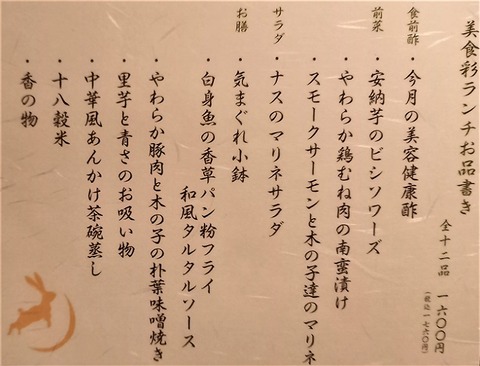 美食彩ランチお品書き
全十二品 一六〇〇円
(税込一七六〇円)
食前酢
・今月の美容健康酢
前菜
・安納芋のビシソワーズ
・やわらか鶏むね肉の南蛮漬け
・スモークサーモンと木の子達のマリネ
サラダ
・ナスのマリネサラダ
お膳
・気まぐれ小鉢
・白身魚の香草パン粉フライ
和風タルタルソース
・やわらか豚肉と木の子の朴葉味噌焼き
・里芋と青さのお吸い物
・中華風あんかけ茶碗蒸し
・十八穀米
・香の物